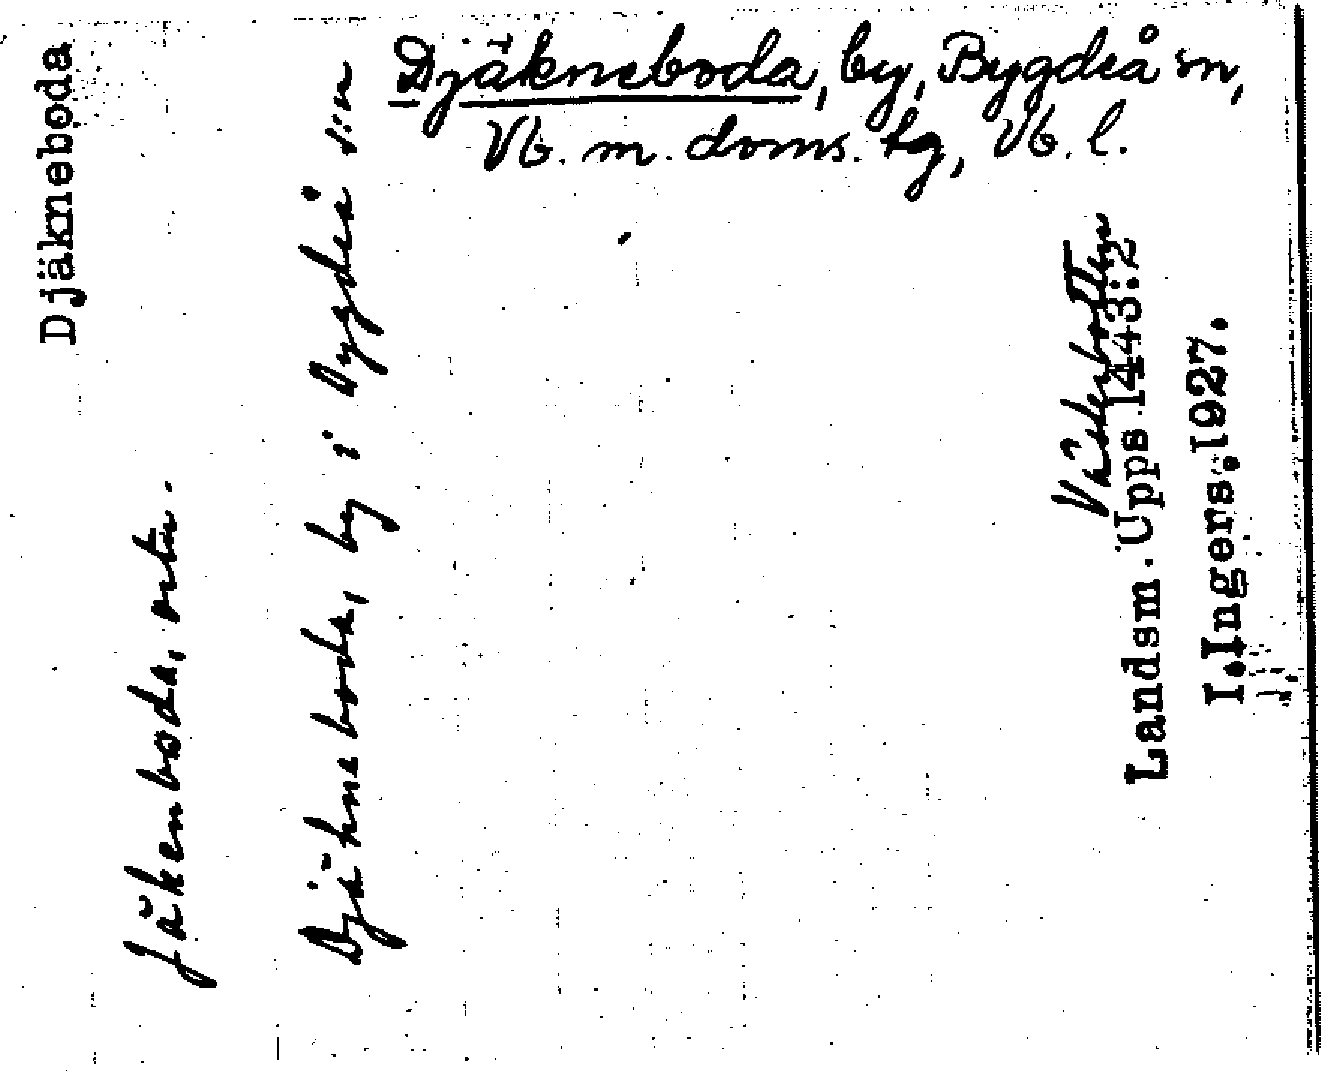 Djäkneboda, by, Bygdeå sn,
Vb. m. doms. tg, Vb. l.
Djäkneboda
Jäkenboda, ortn.
Djäkneboda, by i Bygdeå s:n
Västerbotten
Landsm. Upps 1443:2
I.Ingers.1927.